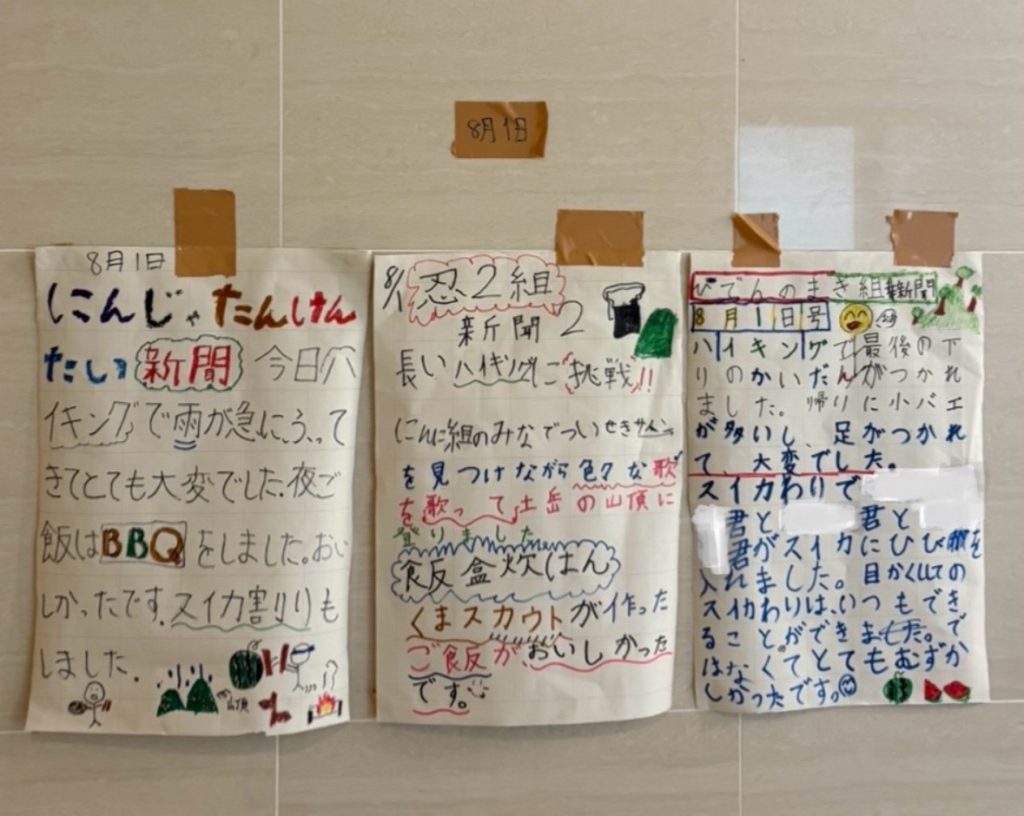 8月1日
8月1日
にんじゃたんけん
たい新聞 今日ハ
イキングで雨が急にふって
きてとても大変でした。夜ご
飯はBBQをしました。おい
しかったです。スイカ割りも
しました。
山頂
8/1 忍2組
新聞2
長いハイキングに挑戦!!
にんに組のみなでついせきサイン
を見つけながら色々な歌
を歌って土岳の山頂に
登りました
飯盒炊はん
くまスカウトが作った
ご飯が、おいしかった
です。
びでんのまき組新聞
8月1日号
ハイキングで最後の下
りのかいだんがつかれ
ました。帰りに小バエ
が多いし、足がつかれ
て、大変でした。
スイカわりで
君と 君と
君がスイカにひびを
入れました。目かくしての
スイカわりは、いつもでき
ることができました。で
はなくてとてもむずか
しかったです。